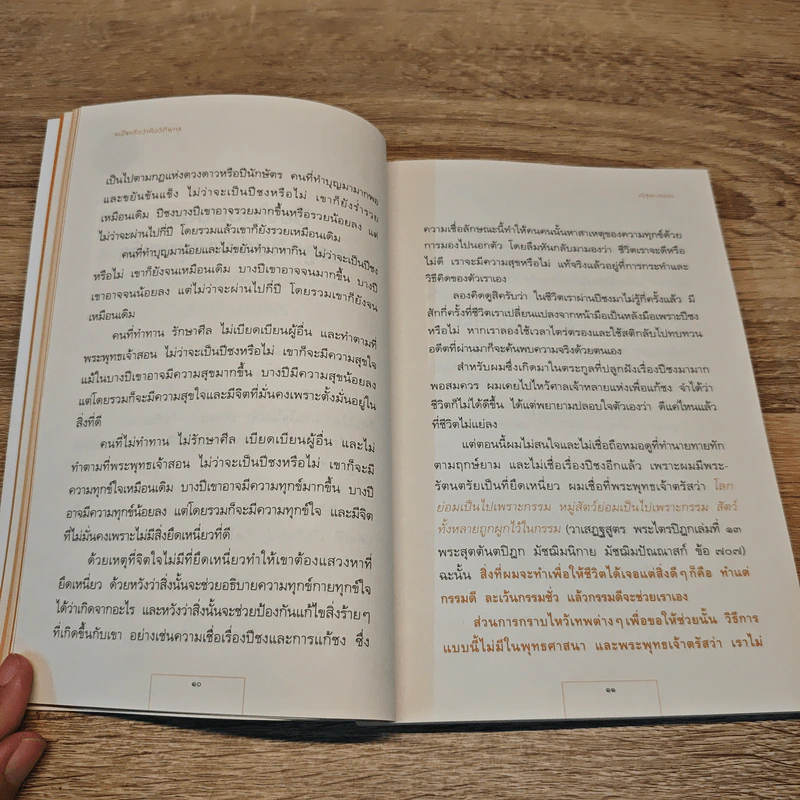 เป็นไปตามกฎแห่งดวงดาวหรือปีนักษัตร คนที่ทำบุญมามากพอ
และขยันขันแข็ง ไม่ว่าจะเป็นปีชงหรือไม่ เขาก็ยังร่ำรวย
เหมือนเดิม ปีชงบางปีเขาอาจรวยมากขึ้นหรือรวยน้อยลง แต่
ไม่ว่าจะผ่านไปกี่ปี โดยรวมแล้วเขาก็ยังรวยเหมือนเดิม
คนที่ทำบุญมาน้อยและไม่ขยันทำมาหากิน ไม่ว่าจะเป็นปีชง
หรือไม่ เขาก็ยังจนเหมือนเดิม บางปีเขาอาจจนมากขึ้น บางปี
เขาอาจจนน้อยลง แต่ไม่ว่าจะผ่านไปกี่ปี โดยรวมเขาก็ยังจน
เหมือนเดิม
คนที่ทำทาน รักษาศีล ไม่เบียดเบียนผู้อื่น และทำตามที่
พระพุทธเจ้าสอน ไม่ว่าจะเป็นปีชงหรือไม่ เขาก็จะมีความสุขใจ
แม้ในบางปีเขาอาจมีความสุขมากขึ้น บางปีมีความสุขน้อยลง
แต่โดยรวมก็จะมีความสุขใจและมีจิตที่มั่นคงเพราะตั้งมั่นอยู่ใน
สิ่งที่ดี
คนที่ไม่ทำทาน ไม่รักษาศีล เบียดเบียนผู้อื่น และไม่
ทำตามที่พระพุทธเจ้าสอน ไม่ว่าจะเป็นปีชงหรือไม่ เขาก็จะมี
ความทุกข์ใจเหมือนเดิม บางปีเขาอาจมีความทุกข์มากขึ้น บางปี
อาจมีความทุกข์น้อยลง แต่โดยรวมก็จะมีความทุกข์ใจ และมีจิต
ที่ไม่มั่นคงเพราะไม่มีสิ่งยึดเหนี่ยวที่ดี
ด้วยเหตุที่จิตใจไม่มีที่ยึดเหนี่ยวทำให้เขาต้องแสวงหาที่
ยึดเหนี่ยว ด้วยหวังว่าสิ่งนั้นจะช่วยอธิบายความทุกข์กายทุกข์ใจ
ได้ว่าเกิดจากอะไร และหวังว่าสิ่งนั้นจะช่วยป้องกันแก้ไขสิ่งร้ายๆ
ที่เกิดขึ้นกับเขา อย่างเช่นความเชื่อเรื่องปีชงและการแก้ชง ซึ่ง
๑๐
ความเชื่อลักษณะนี้ทำให้คนคนนั้นหาสาเหตุของความทุกข์ด้วย
การมองไปนอกตัว โดยลืมหันกลับมามองว่า ชีวิตเราจะดีหรือ
ไม่ดี เราจะมีความสุขหรือไม่ แท้จริงแล้วอยู่ที่การกระทำและ
วิธีคิดของตัวเราเอง
ลองคิดดูสิครับว่า ในชีวิตเราผ่านปีชงมาไม่รู้กี่ครั้งแล้ว มี
สักกี่ครั้งที่ชีวิตเราเปลี่ยนแปลงจากหน้ามือเป็นหลังมือเพราะปีชง
หรือไม่ หากเราลองใช้เวลาไตร่ตรองและใช้สติกลับไปทบทวน
อดีตที่ผ่านมาก็จะค้นพบความจริงด้วยตนเอง
สำหรับผมซึ่งเกิดมาในตระกูลที่ปลูกฝังเรื่องปีชงมามาก
พอสมควร ผมเคยไปไหว้ศาลเจ้าหลายแห่งเพื่อแก้ชง จำได้ว่า
ชีวิตก็ไม่ได้ดีขึ้น ได้แต่พยายามปลอบใจตัวเองว่า ดีแค่ไหนแล้ว
ที่ชีวิตไม่แย่ลง
แต่ตอนนี้ผมไม่สนใจและไม่เชื่อถือหมอดูที่ทำนายทายทัก
ตามฤกษ์ยาม และไม่เชื่อเรื่องปีชงอีกแล้ว เพราะผมมีพระ-
รัตนตรัยเป็นที่ยึดเหนี่ยว ผมเชื่อที่พระพุทธเจ้าตรัสว่า โลก
ย่อมเป็นไปเพราะกรรม หมู่สัตว์ย่อมเป็นไปเพราะกรรม สัตว์
ทั้งหลายถูกผูกไว้ในกรรม (วาเสฏฐสูตร พระไตรปิฎกเล่มที่ ๑๓
พระสุตตันตปิฎก มัชฌิมนิกาย มัชฌิมปัณณาสก์ ข้อ ๗๐๗)
ฉะนั้น สิ่งที่ผมจะทำเพื่อให้ชีวิตได้เจอแต่สิ่งดีๆ ก็คือ ทำแต่
กรรมดี ละเว้นกรรมชั่ว แล้วกรรมดีจะช่วยเราเอง
ส่วนการกราบไหว้เทพต่างๆ เพื่อขอให้ช่วยนั้น วิธีการ
แบบนี้ไม่มีในพุทธศาสนา และพระพุทธเจ้าตรัสว่า เราไม่
๑๑